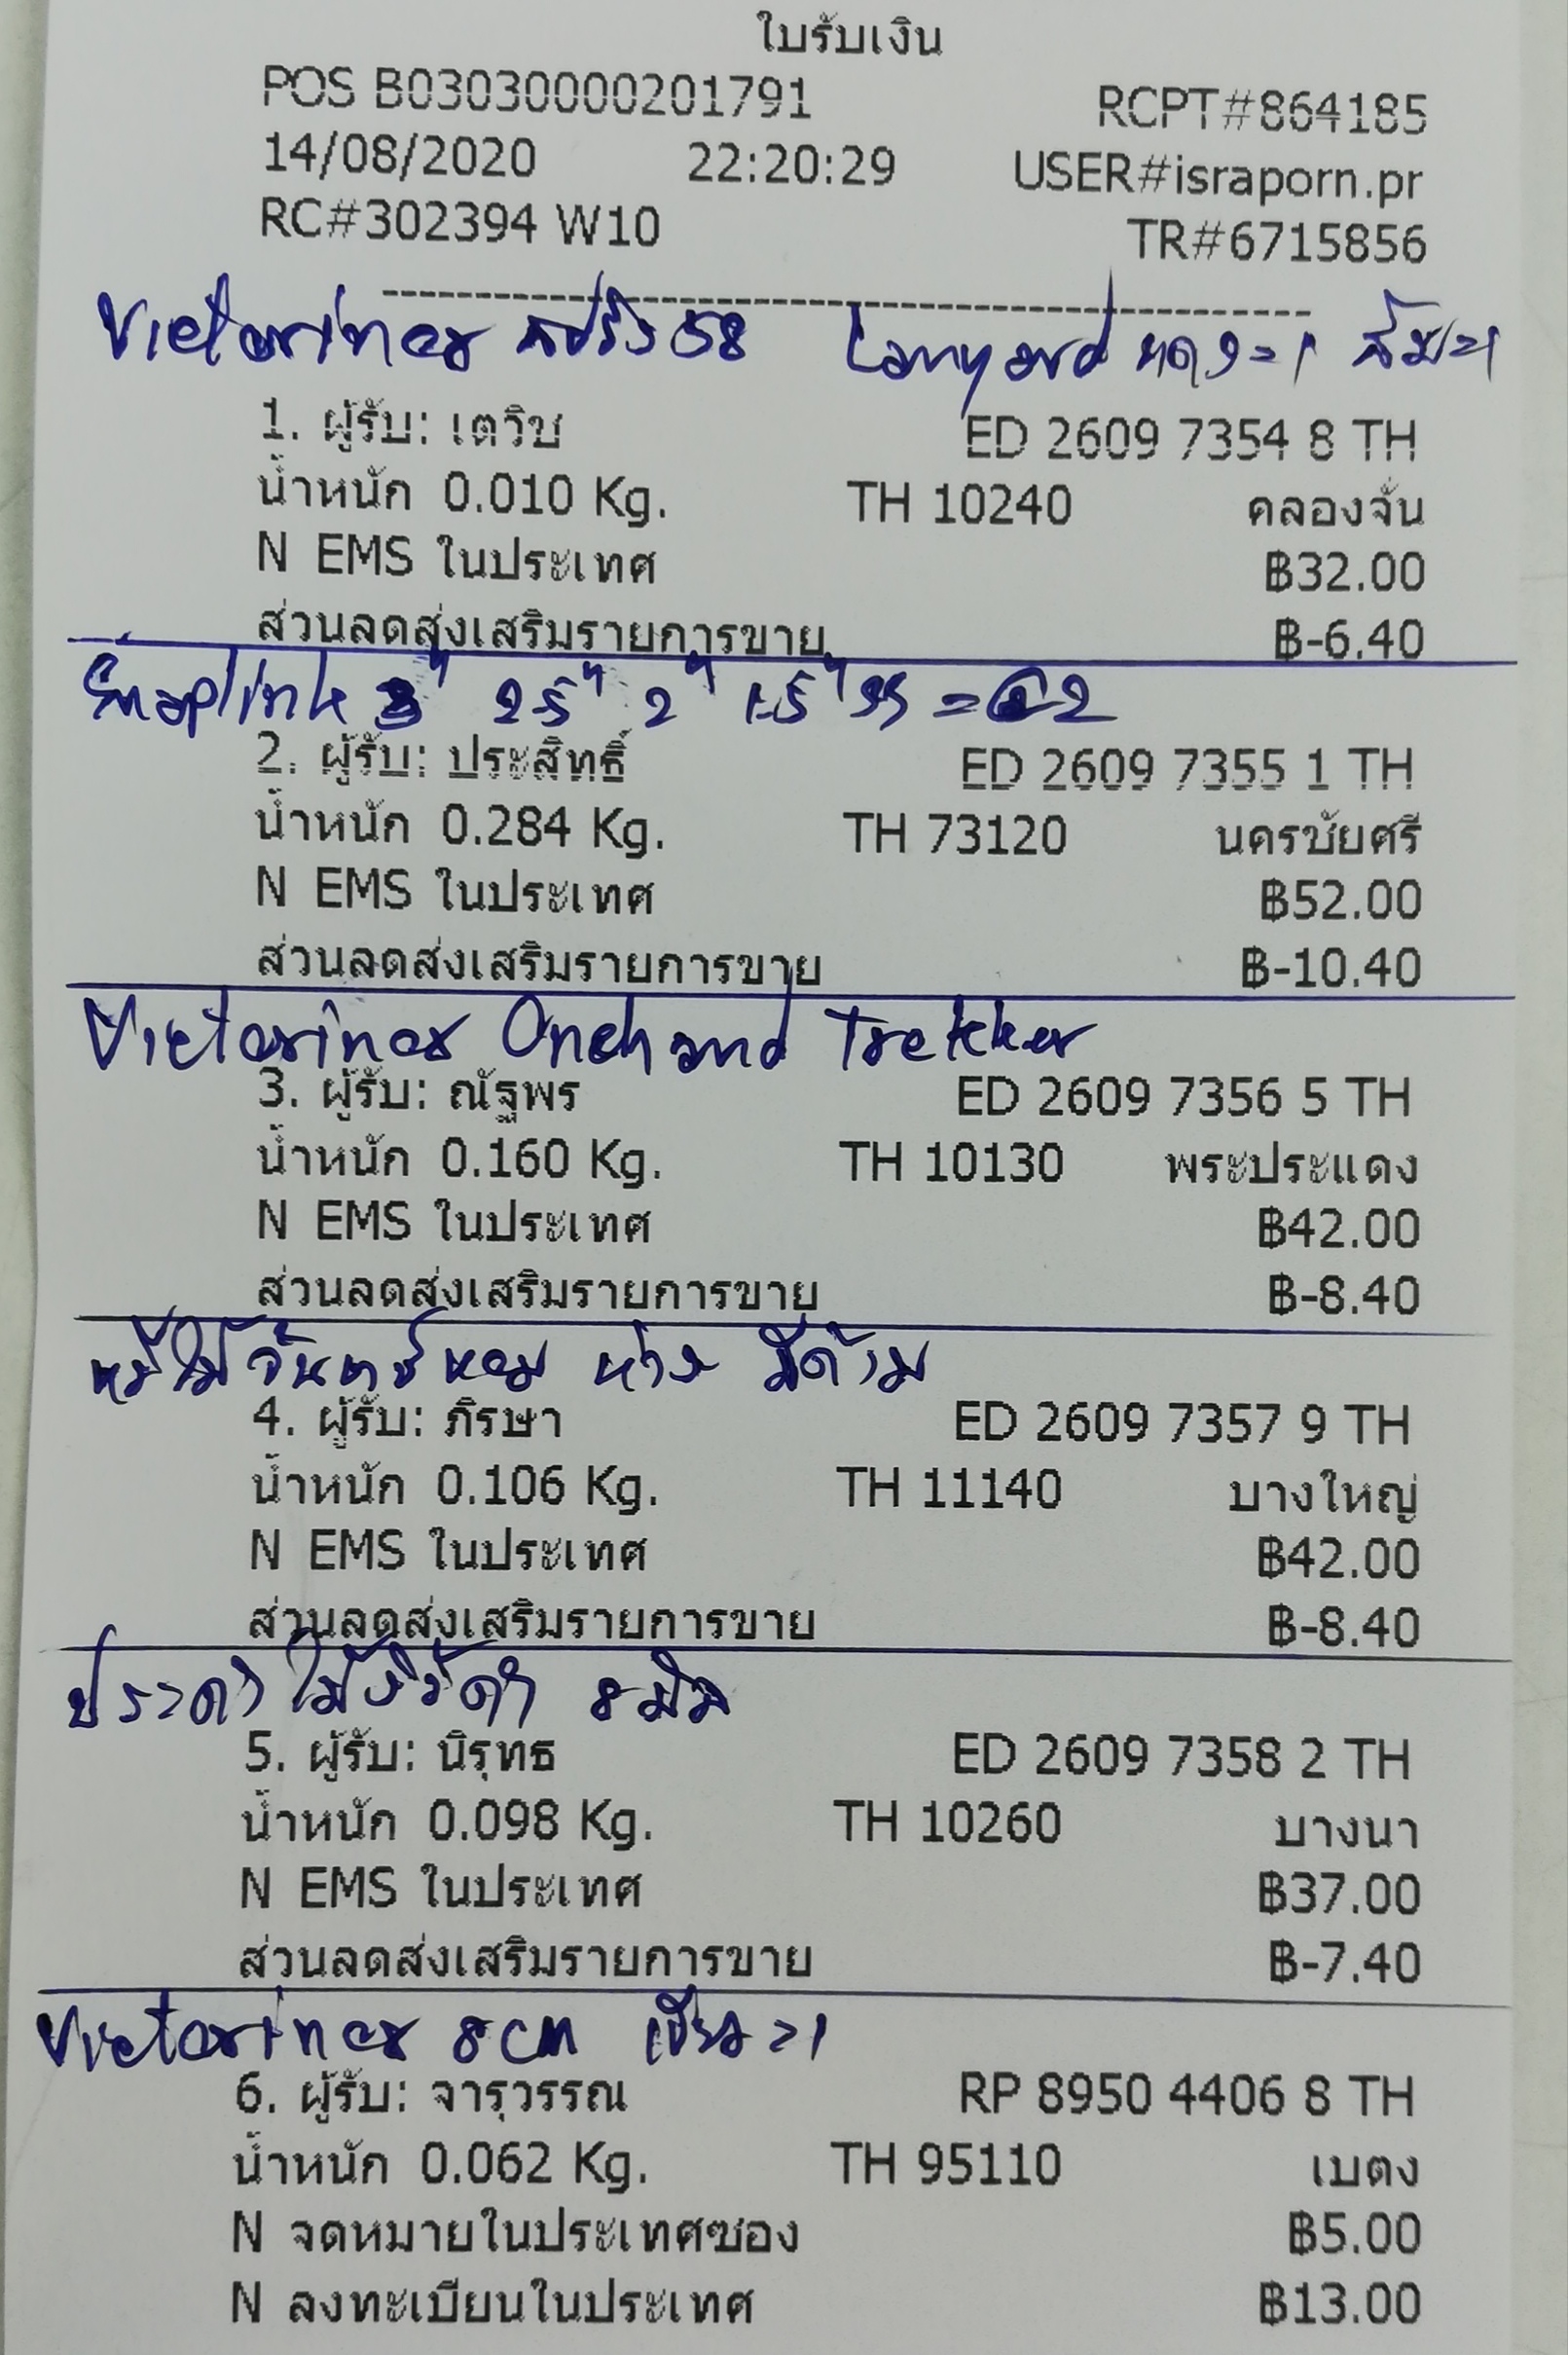 ใบรับเงิน
POS B03030000201791 RCPT#864185
14/08/2020 22:20:29 USER#israporn.pr
RC#302394 W10 TR#6715856
Victorinox สปริง 58 Lanyard แดง=1 ส้ม=1
1. ผู้รับ: เตวิช ED 2609 7354 8 TH
น้ำหนัก 0.010 Kg. TH 10240 คลองจั่น
N EMS ในประเทศ ฿32.00
ส่วนลดส่งเสริมรายการขาย ฿-6.40
Snaplink 3" 2.5" 2" 1.5" = 2
2. ผู้รับ: ประสิทธิ์ ED 2609 7355 1 TH
น้ำหนัก 0.284 Kg. TH 73120 นครชัยศรี
N EMS ในประเทศ ฿52.00
ส่วนลดส่งเสริมรายการขาย ฿-10.40
Victorinox Onehand Trekker
3. ผู้รับ: ณัฐพร ED 2609 7356 5 TH
น้ำหนัก 0.160 Kg. TH 10130 พระประแดง
N EMS ในประเทศ ฿42.00
ส่วนลดส่งเสริมรายการขาย ฿-8.40
หวีไม้จันทร์หอม ห่าง มีด้าม
4. ผู้รับ: ภิรษา ED 2609 7357 9 TH
น้ำหนัก 0.106 Kg. TH 11140 บางใหญ่
N EMS ในประเทศ ฿42.00
ส่วนลดส่งเสริมรายการขาย ฿-8.40
ประคำ ไม้งิ้วดำ 8 มิล
5. ผู้รับ: นิรุทธ ED 2609 7358 2 TH
น้ำหนัก 0.098 Kg. TH 10260 บางนา
N EMS ในประเทศ ฿37.00
ส่วนลดส่งเสริมรายการขาย ฿-7.40
Victorinox 8cm เขียว=1
6. ผู้รับ: จารุวรรณ RP 8950 4406 8 TH
น้ำหนัก 0.062 Kg. TH 95110 เบตง
N จดหมายในประเทศซอง ฿5.00
N ลงทะเบียนในประเทศ ฿13.00